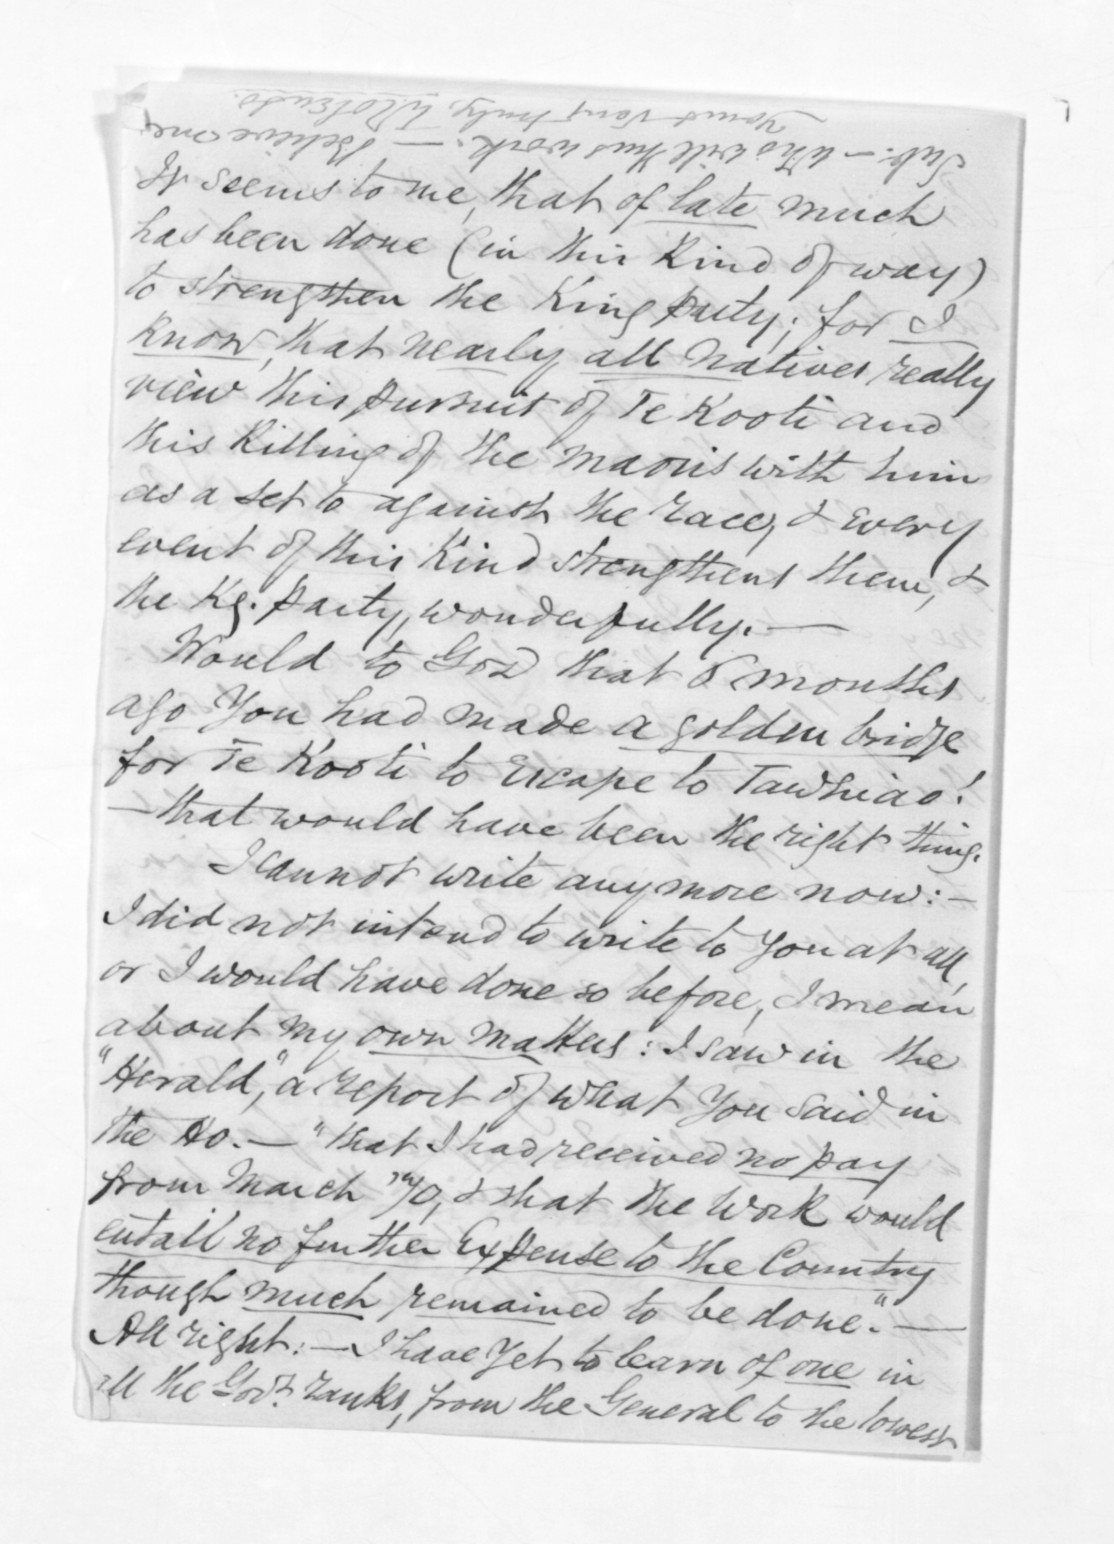 It seems to me, that of late much
has been done (in this kind of way)
to strengthen the King party; for I
know, that nearly all natives really
view this pursuit of Te Kooti and
this killing of the maoris with him
as a set to against the race, & every
event of this kind strengthens them, &
the Kg. party, wonderfully.—
Would to God that 6 months
ago You had made a golden bridge
for Te Kooti to escape to Tawhiao!
—that would have been the right thing.
I cannot write any more now:—
I did not intend to write to You at all,
or I would have done so before, I mean
about my own matters: I saw in the
"Herald," a report of what You said in
the Ho.—"that I had received no pay
from March /70, & that the work would
entail no further Expense to the Country
though much remained to be done."—
All right:—I have Yet to learn of one in
all the Govt. ranks, from the General to the lowest
Sub.—who will thus work.—Believe me,
Yours very truly, W Colenso.